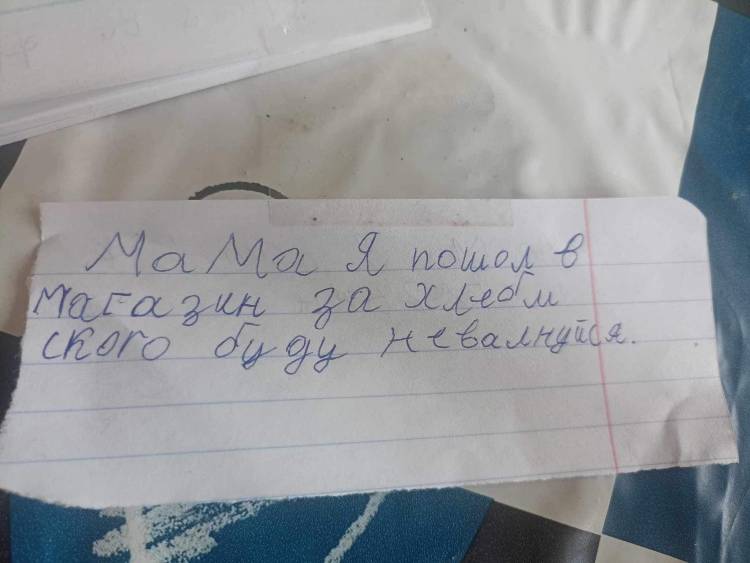 МаМа я пошол в
магазин за хлебм
ского буду невалнуйся.